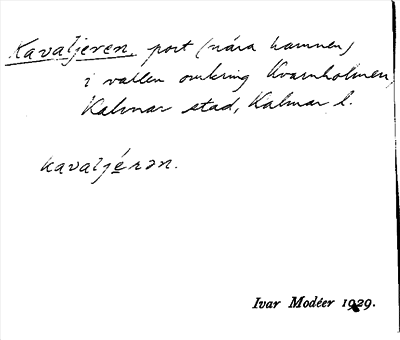 Kavaljeren, port (nära hamnen)
i vallen omkring Kvarnholmen,
Kalmar stad, Kalmar l.
kavaljéran.
Ivar Modéer 1929.